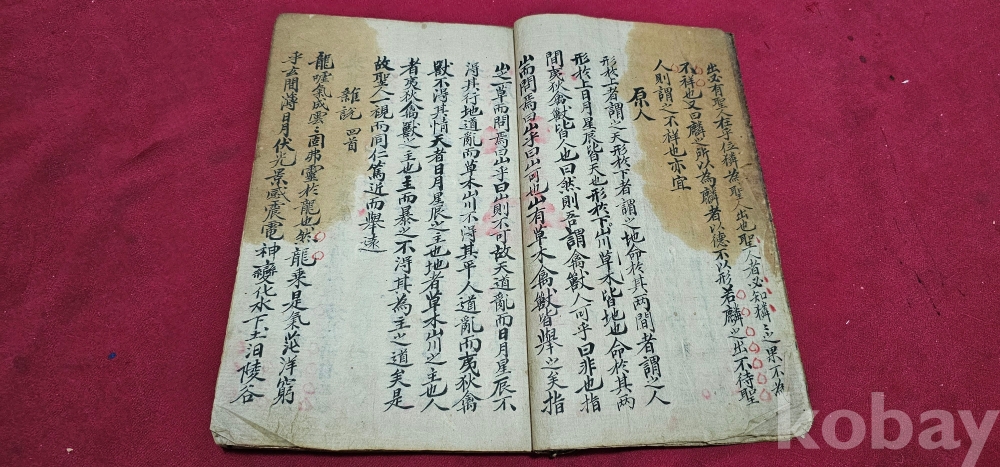 出必有聖人在乎位獜為聖人出也聖人者必知獜〻之果不為
不祥也又曰麟之所以為麟者以德不以形若麟之出不待聖
人則謂之不祥也亦宜
原人
形於上者謂之天形於下者謂之地命於其两間者謂之人
形於上日月星辰皆天也形於下山川草木皆地也命於其两
間夷狄禽獸皆人也曰然則吾謂禽獸人可乎曰非也指
山而問焉曰山乎曰山可也山有草木禽獸皆舉之矣指
山之一草而問焉曰山乎曰山則不可故天道亂而日月星辰不
得其行地道亂而草木山川不得其平人道亂而夷狄禽
獸不得其情天者日月星辰之主也地者草木山川之主也人
者夷狄禽獸之主也主而暴之不得其為主之道矣是
故聖人一視而同仁篤近而舉遠
雜說 四首
龍噓氣成雲〻固弗靈於龍也然龍乘是氣茫洋窮
乎玄間薄日月伏光景感震電神變化水下土汩陵谷
kobay